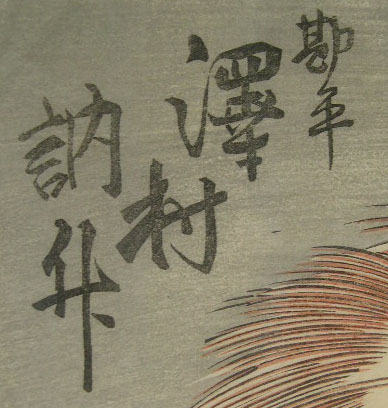 勘平
澤村
訥升